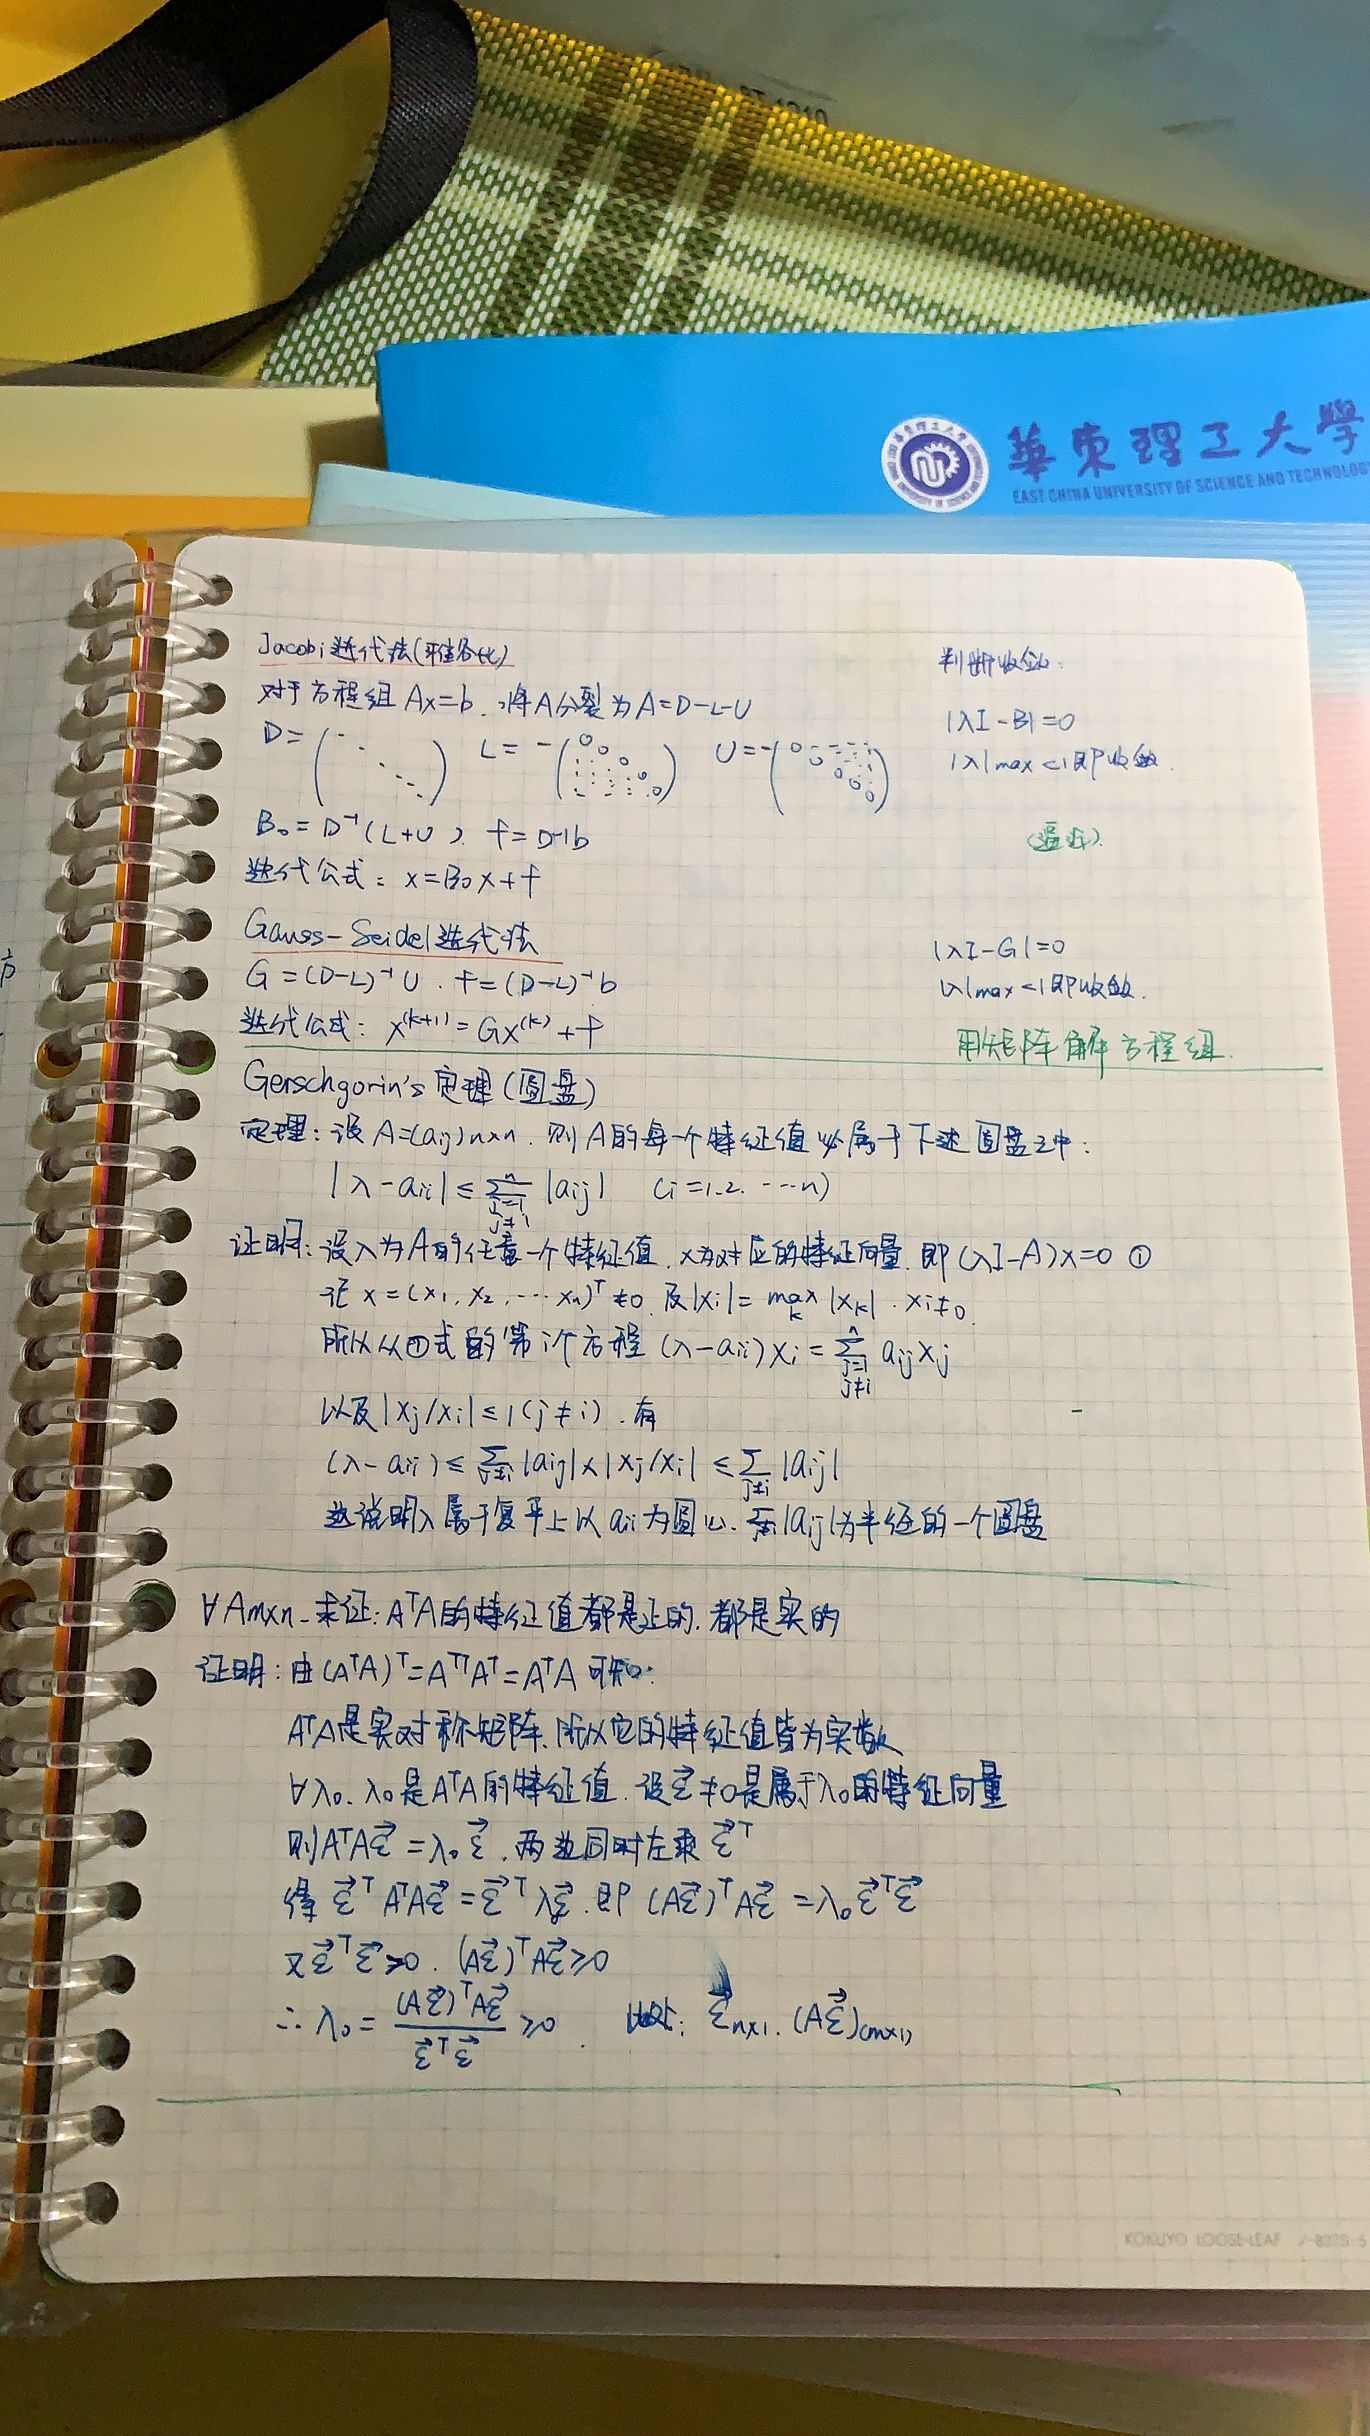 華東理工大學
EAST CHINA UNIVERSITY OF SCIENCE AND TECHNOLOGY
Jacobi迭代法(雅各比)
判断收敛:
对于方程组 Ax=b, 将A分裂为A=D-L-U
|λI-B|=0
D= L=- U=-
|λ|max<1即收敛.
B₀=D⁻¹(L+U). f=D⁻¹b
(逼近).
迭代公式: x=B₀x+f
Gauss-Seidel迭代法
|λI-G|=0
G=(D-L)⁻¹U. f=(D-L)⁻¹b
|λ|max<1即收敛.
迭代公式: x⁽ᵏ⁺¹⁾=Gx⁽ᵏ⁾+f
用矩阵解方程组.
Gerschgorin's 定理(圆盘)
定理: 设A=(aij)n×n. 则A的每一个特征值必属于下述圆盘之中:
|λ-aii| ≤ Σ(j=1, j≠i → n) |aij| (i=1.2. ⋯n)
证明: 设λ为A的任意一个特征值, x为对应的特征向量. 即(λI-A)x=0 ①
记 x=(x₁, x₂, ⋯xn)ᵀ≠0 及|xi|= max k |xk|. xi≠0.
所以从①式的第i个方程 (λ-aii)xi= Σ(j=1, j≠i → n) aij xj
以及|xj/xi|≤1(j≠i). 有
(λ-aii) ≤ Σ j≠i |aij|×|xj/xi| ≤ Σ j≠i |aij|
这说明λ属于复平上以aii为圆心. Σ j≠i |aij|为半径的一个圆盘
∀Am×n. 求证: AᵀA的特征值都是正的. 都是实的
证明: 由(AᵀA)ᵀ=AᵀᵀAᵀ=AᵀA 可知:
AᵀA是实对称矩阵, 所以它的特征值皆为实数
∀λ₀. λ₀是AᵀA的特征值. 设ξ⃗≠0是属于λ₀的特征向量
则AᵀAξ⃗=λ₀ξ⃗. 两边同时左乘ξ⃗ᵀ
得 ξ⃗ᵀAᵀAξ⃗=ξ⃗ᵀλξ⃗. 即 (Aξ⃗)ᵀAξ⃗=λ₀ξ⃗ᵀξ⃗
又ξ⃗ᵀξ⃗>0. (Aξ⃗)ᵀAξ⃗≥0
∴ λ₀= (Aξ⃗)ᵀAξ⃗ / ξ⃗ᵀξ⃗ ≥0. ξ⃗n×1. (Aξ⃗)(m×1)
KOKUYO LOOSE-LEAF